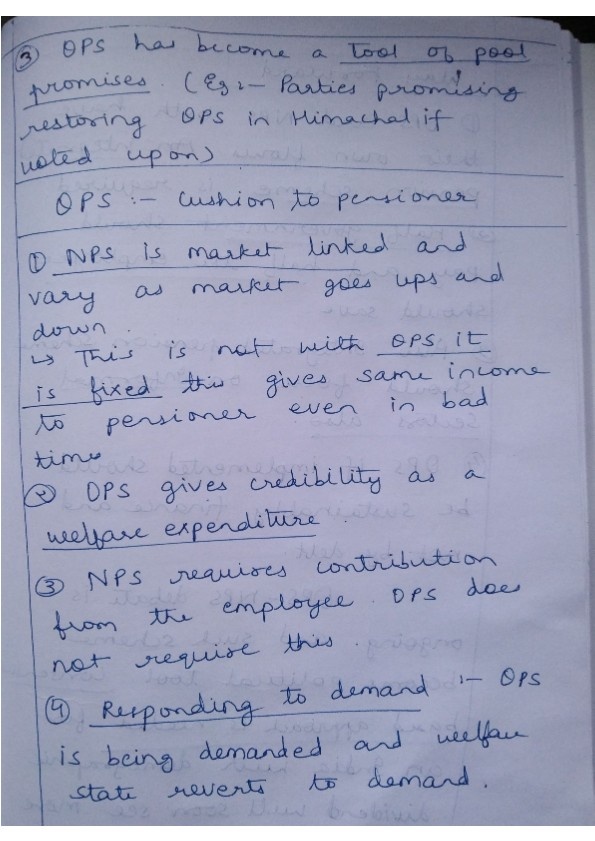 ③ OPS has become a tool of pool
promises. (Eg :- Parties promising
restoring OPS in Himachal if
voted upon)
OPS :- Cushion to pensioner
① NPS is market linked and
vary as market goes ups and
down.
↳ This is not with OPS it
is fixed this gives same income
to pensioner even in bad
time
② OPS gives credibility as a
welfare expenditure.
③ NPS requires contribution
from the employee. OPS does
not require this.
④ Responding to demand :- OPS
is being demanded and welfare
state reverts to demand.